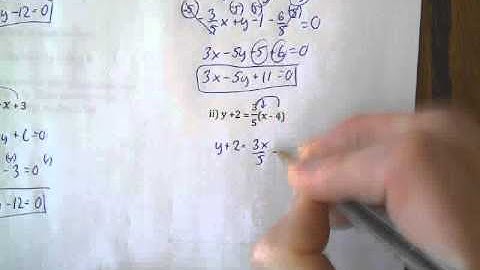 y-12=0
(-5) -3/5x+y-1-6/5=0
3x-5y+5+6=0
3x-5y+11=0
x+3
ii) y+2=3/5(x-4)
y+6=0
y+2=3x/5-
-3=0
y-12=0